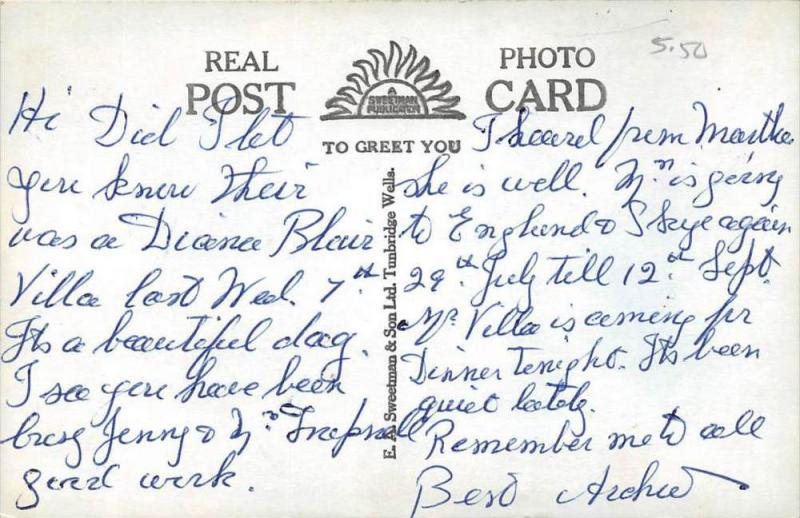 5.50
REAL
POST
PHOTO
CARD
A
SWEETMAN
PUBLICATION
TO GREET YOU
E. A. Sweetman & Son Ltd. Tunbridge Wells.
Hi Did I let
you know their
was a Diana Blair
Villa last Wed. 7th
Its a beautiful day.
I see you have been
busy Jenny & Mr
good work.
I heard from Martha
she is well. Mn is going
to England & Skye again
29th July till 12th Sept.
Mr Villa is coming for
Dinner tonight. Its been
quiet lately.
Remember me to all
Best Archie